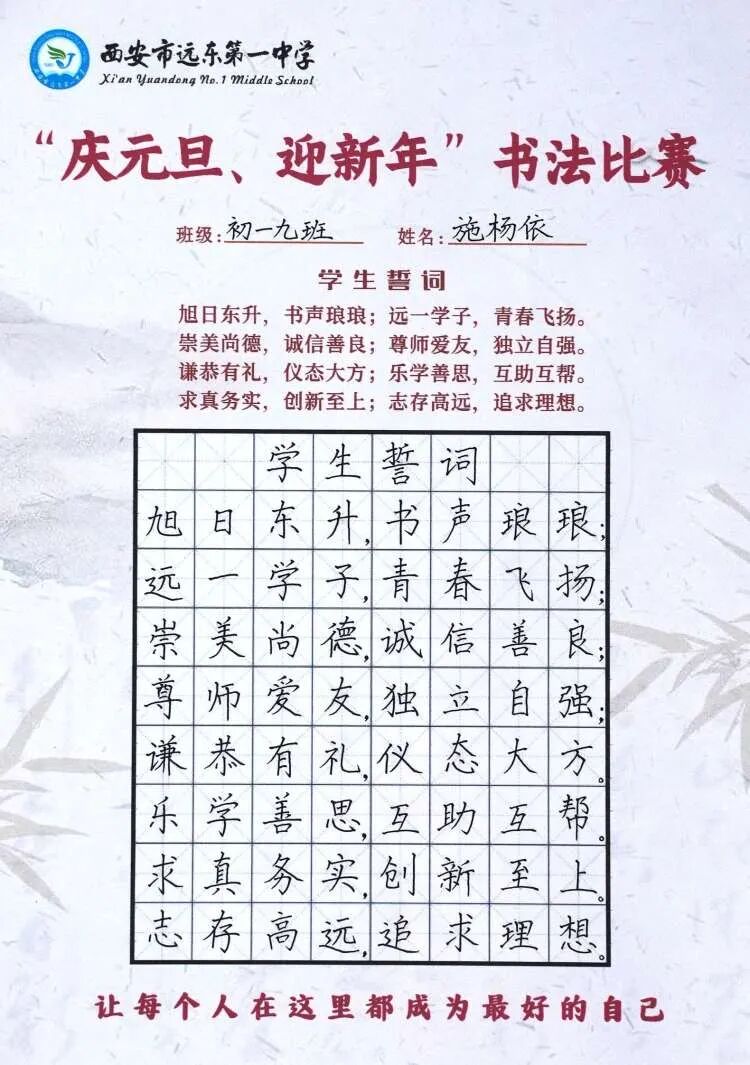 西安市远东第一中学
Xi'an Yuandong No.1 Middle School
“庆元旦、迎新年”书法比赛
班级:初一九班 姓名:施杨依
学生誓词
旭日东升，书声琅琅；远一学子，青春飞扬。
崇美尚德，诚信善良；尊师爱友，独立自强。
谦恭有礼，仪态大方；乐学善思，互助互帮。
求真务实，创新至上；志存高远，追求理想。
学生誓词
旭日东升,书声琅琅;
远一学子,青春飞扬;
崇美尚德,诚信善良;
尊师爱友,独立自强;
谦恭有礼,仪态大方。
乐学善思,互助互帮。
求真务实,创新至上。
志存高远,追求理想。
让每个人在这里都成为最好的自己